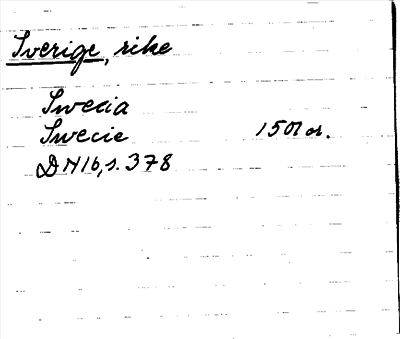 Sverige, rike
Swecia
Swecie 1507 or.
DN16, s. 378